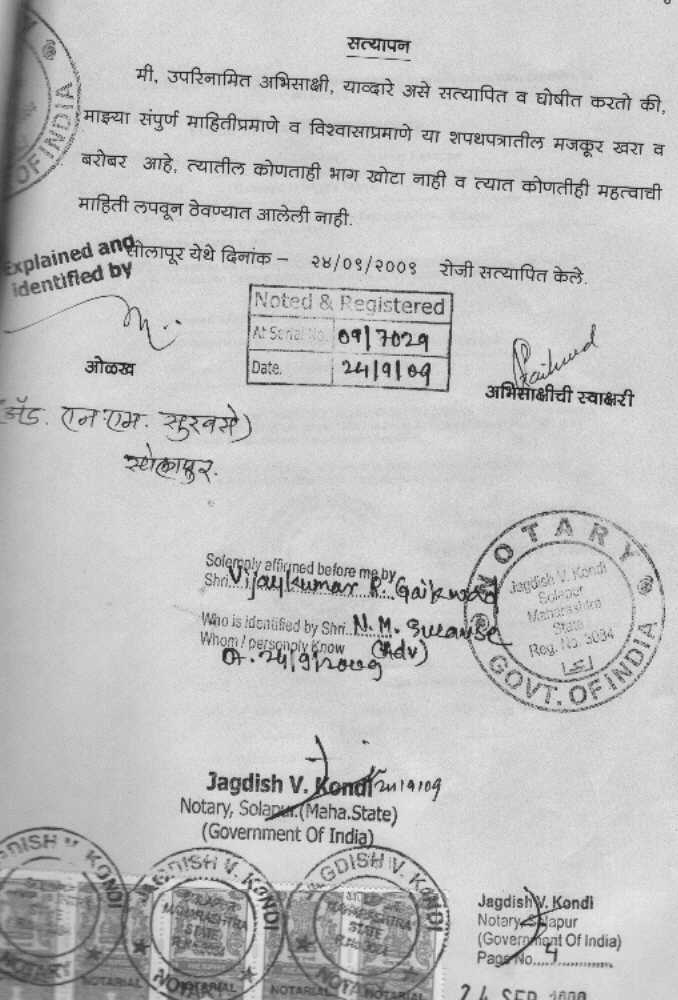 सत्यापन
मी, उपरिनामित अभिसाक्षी, याव्दारे असे सत्यापित व घोषीत करतो की,
माझ्या संपुर्ण माहितीप्रमाणे व विश्वासाप्रमाणे या शपथपत्रातील मजकूर खरा व
बरोबर आहे, त्यातील कोणताही भाग खोटा नाही व त्यात कोणतीही महत्वाची
माहिती लपवून ठेवण्यात आलेली नाही.
सोलापूर येथे दिनांक – २४/०९/२००९ रोजी सत्यापित केले.
OF INDIA
Explained and
identified by
Noted & Registered
At Serial No. 09/7029
Date. 24/9/09
ओळख
अभिसाक्षीची स्वाक्षरी
(अ‍ॅड. एन.एम. सुरवसे)
सोलापूर.
Solemnly affirmed before me by
Shri. Vijaykumar R. Gaikwad
Who is identified by Shri. N. M. Survase
Whom I personply Know (Adv)
24/9/2009
NOTARY
Jagdish V. Kondi
Solapur
Maharashtra
State
Reg. No. 3084
GOVT. OF INDIA
Jagdish V. Kondi 24/9/09
Notary, Solapur.(Maha.State)
(Government Of India)
JAGDISH V. KONDI
SOLAPUR
MAHARASHTRA
STATE
NOTARY
NOTARIAL
Jagdish V. Kondi
Notary, Solapur
(Government Of India)
Page No. 4
24 SEP